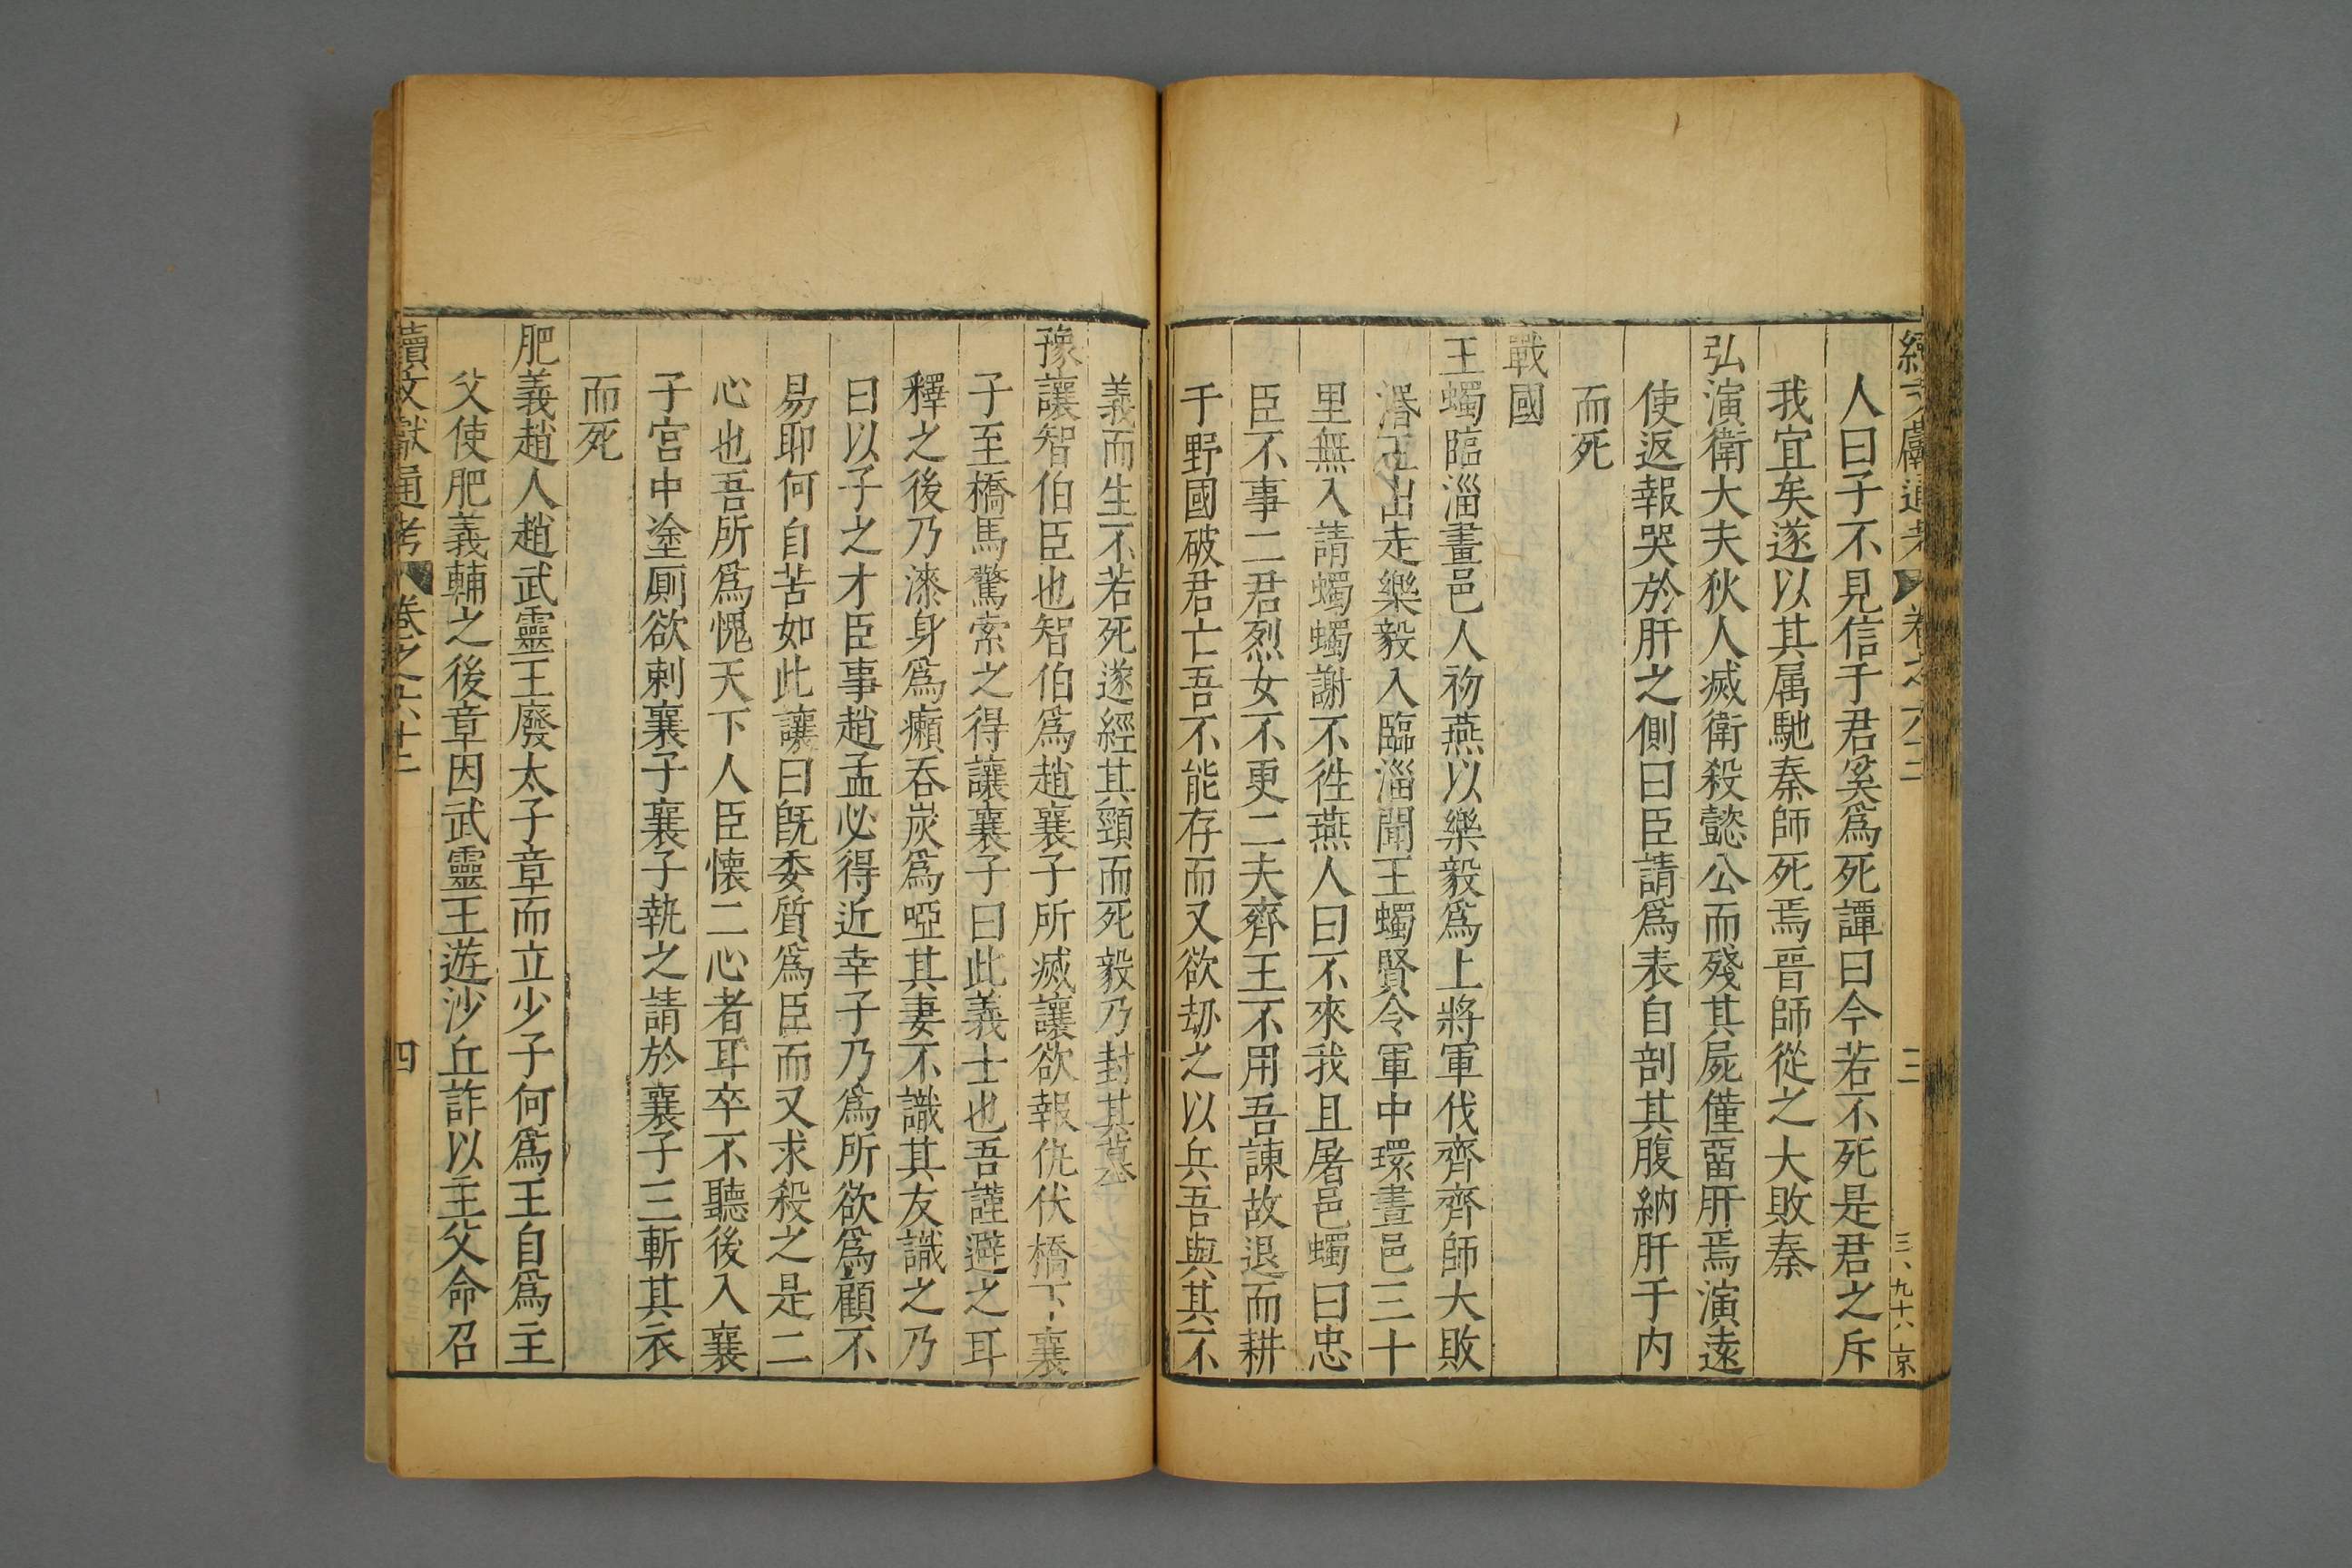 續文獻通考 卷之六十二 三 三、九十六 京
人曰子不見信于君奚爲死譚曰今若不死是君之斥
我宜矣遂以其属馳秦師死焉晉師從之大敗秦
弘演衛大夫狄人滅衛殺懿公而殘其屍僅畱肝焉演遠
使返報哭於肝之側曰臣請爲表自剖其腹納肝于内
而死
戰國
王蠋臨淄畫邑人初燕以樂毅爲上將軍伐齊齊師大敗
湣王出走樂毅入臨淄聞王蠋賢令軍中環畫邑三十
里無入請蠋蠋謝不徃燕人曰不來我且屠邑蠋曰忠
臣不事二君烈女不更二夫齊王不用吾諫故退而耕
于野國破君亡吾不能存而又欲劫之以兵吾與其不
義而生不若死遂經其頸而死毅乃封其墓
豫讓智伯臣也智伯爲趙襄子所滅讓欲報仇伏橋下襄
子至橋馬驚索之得讓襄子曰此義士也吾謹避之耳
釋之後乃漆身爲癩吞炭爲啞其妻不識其友識之乃
曰以子之才臣事趙孟必得近幸子乃爲所欲爲顧不
易耶何自苦如此讓曰既委質爲臣而又求殺之是二
心也吾所爲愧天下人臣懐二心者耳卒不聽後入襄
子宮中塗厠欲刺襄子襄子執之請於襄子三斬其衣
而死
肥義趙人趙武靈王廢太子章而立少子何爲王自爲主
父使肥義輔之後章因武靈王遊沙丘詐以主父命召
續文獻通考 卷之六十二 四